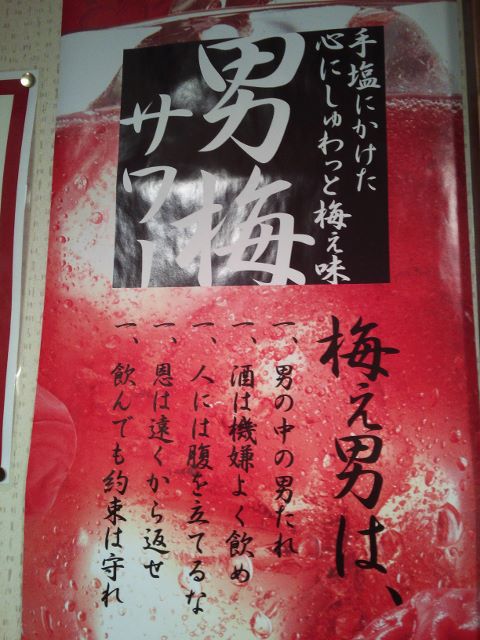 手塩にかけた
心にしゅわっと梅ぇ味
男梅
サワー
梅ぇ男は、
一、男の中の男たれ
一、酒は機嫌よく飲め
一、人には腹を立てるな
一、恩は遠くから返せ
一、飲んでも約束は守れ